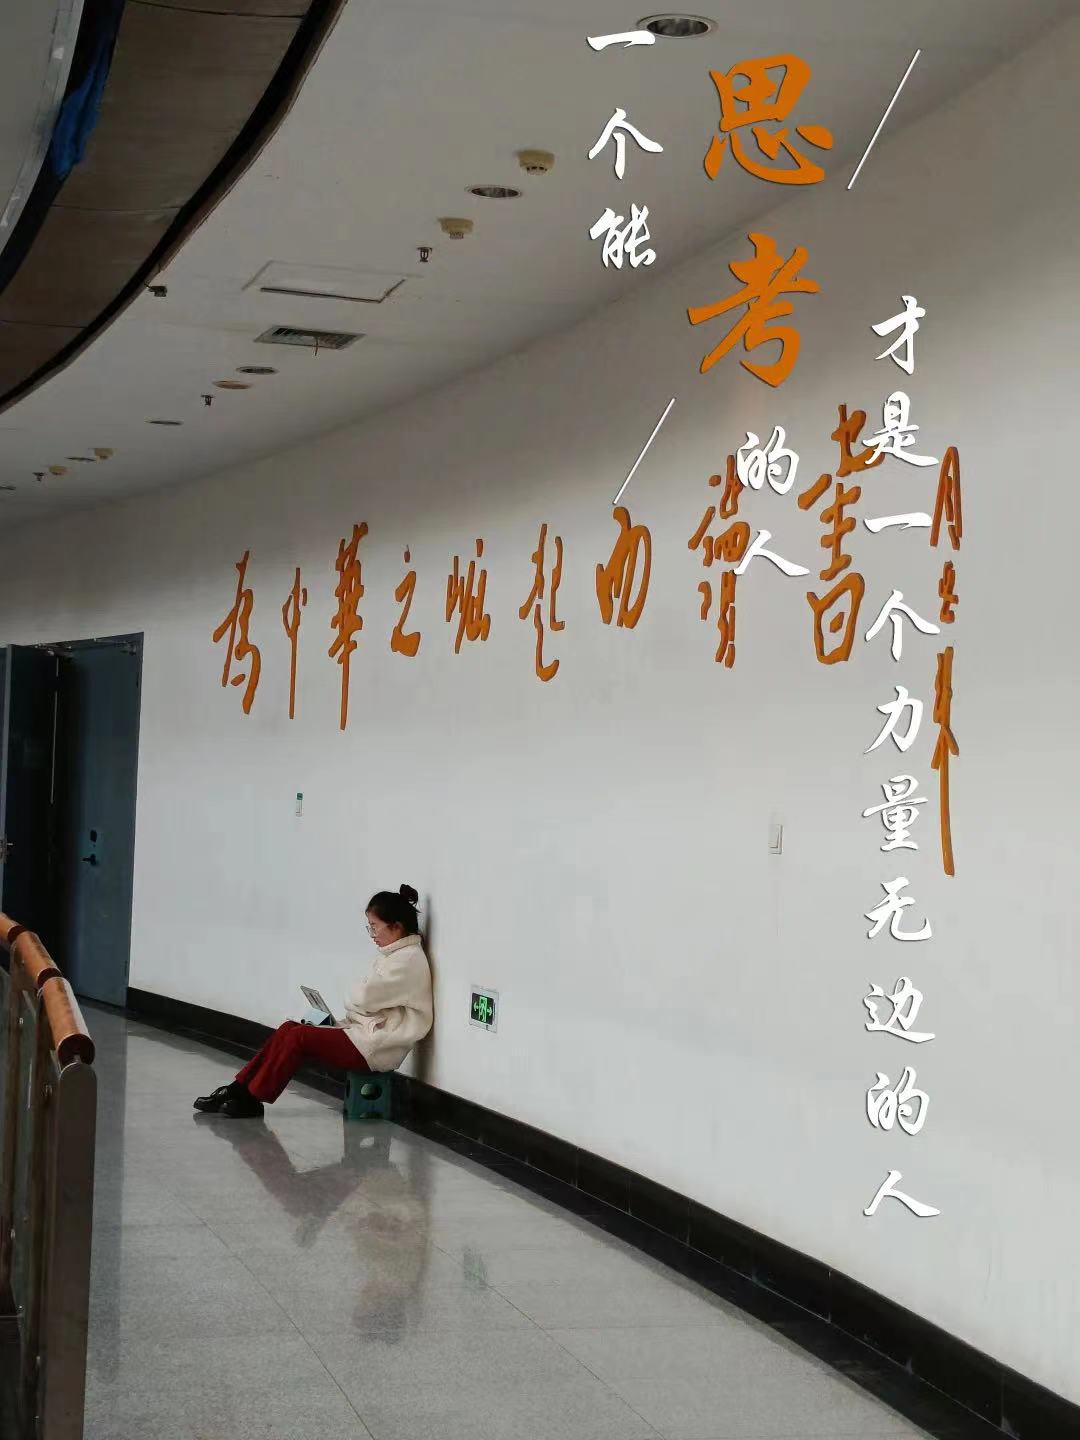 一个能
思考
的人
才是一个力量无边的人
為中華之崛起而讀書
周恩来